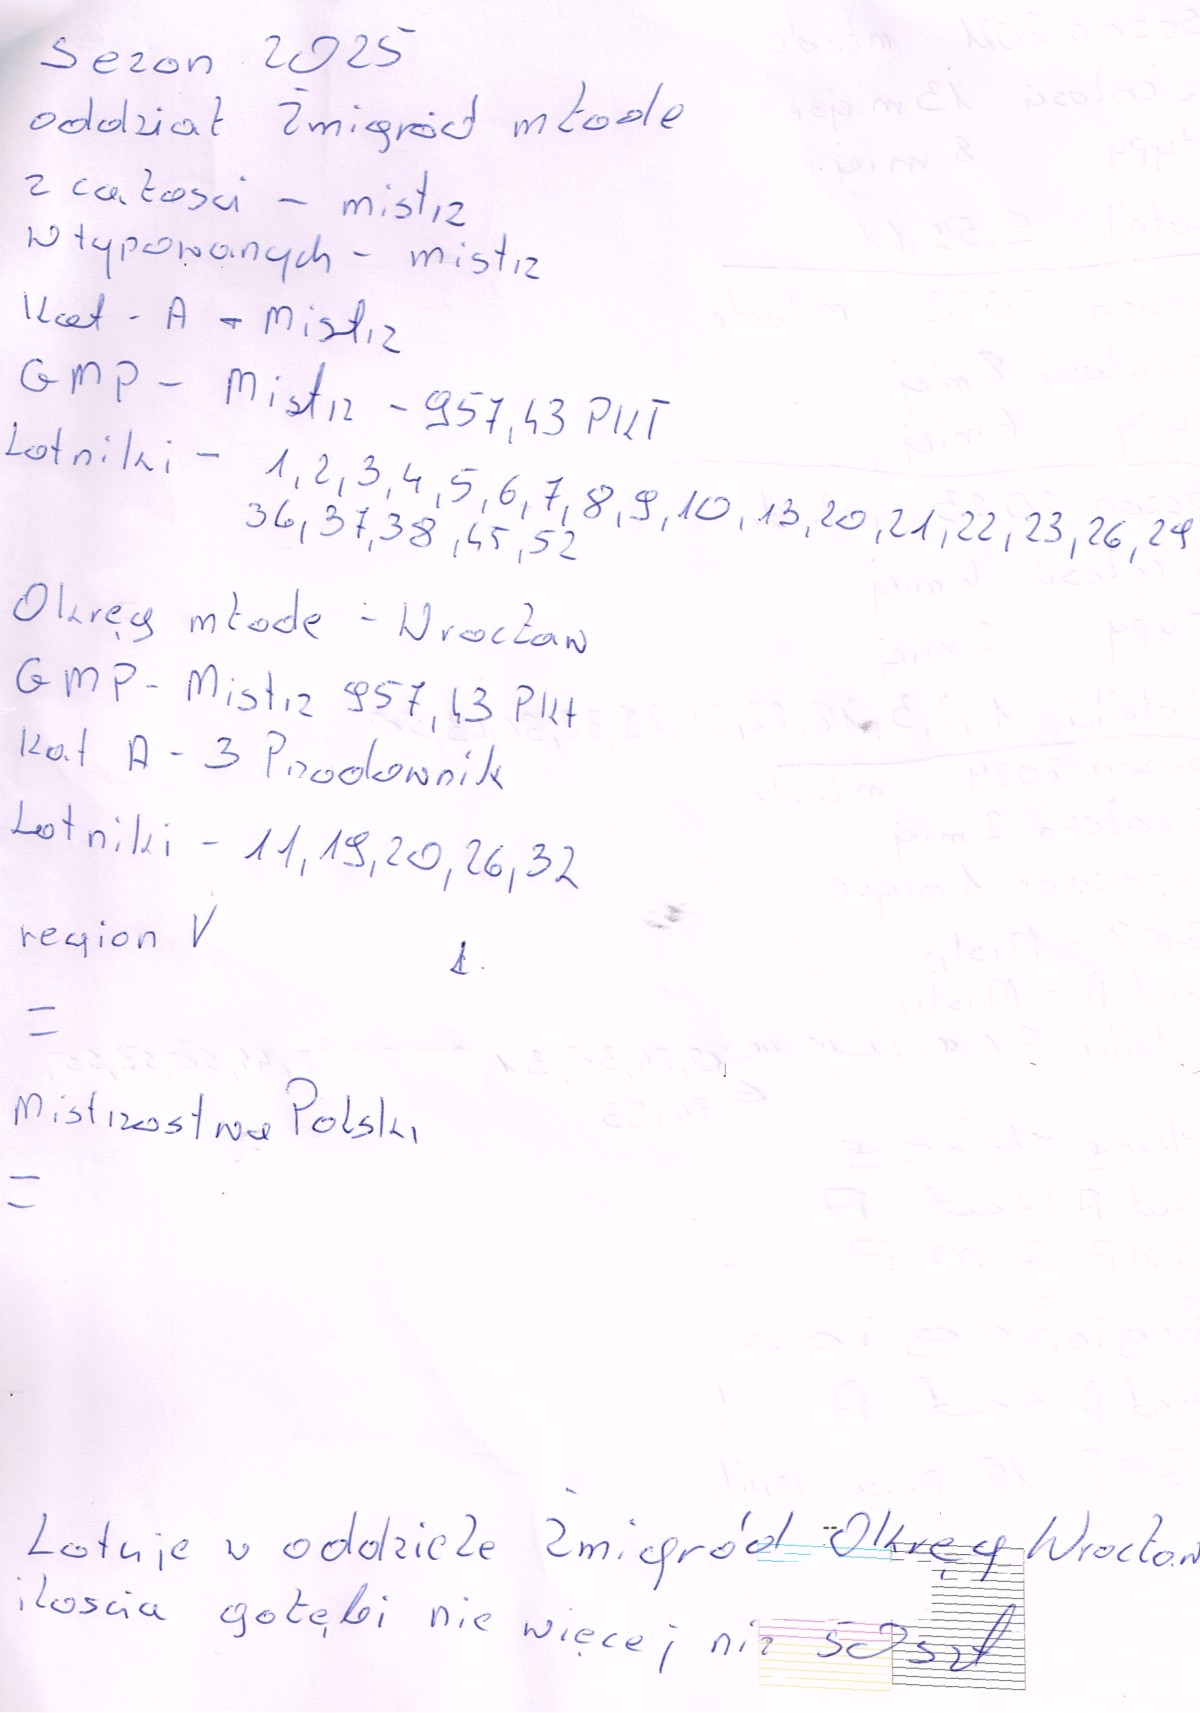 Sezon 2025
oddział Żmigród młode
z całości - mistrz
wtypowanych - mistrz
Kat - A - Mistrz
GMP - Mistrz - 957,43 PKT
Lotniki - 1, 2, 3, 4, 5, 6, 7, 8, 9, 10, 13, 20, 21, 22, 23, 26, 29
36, 37, 38, 45, 52
Okręg młode - Wrocław
GMP - Mistrz 957,43 Pkt
Kat A - 3 Przodownik
Lotniki - 11, 19, 20, 26, 32
region V
1.
=
Mistrzostwa Polski
=
Lotuje w oddziele Żmigród Okręg Wrocław
ilościa gołębi nie więcej niż 50szt